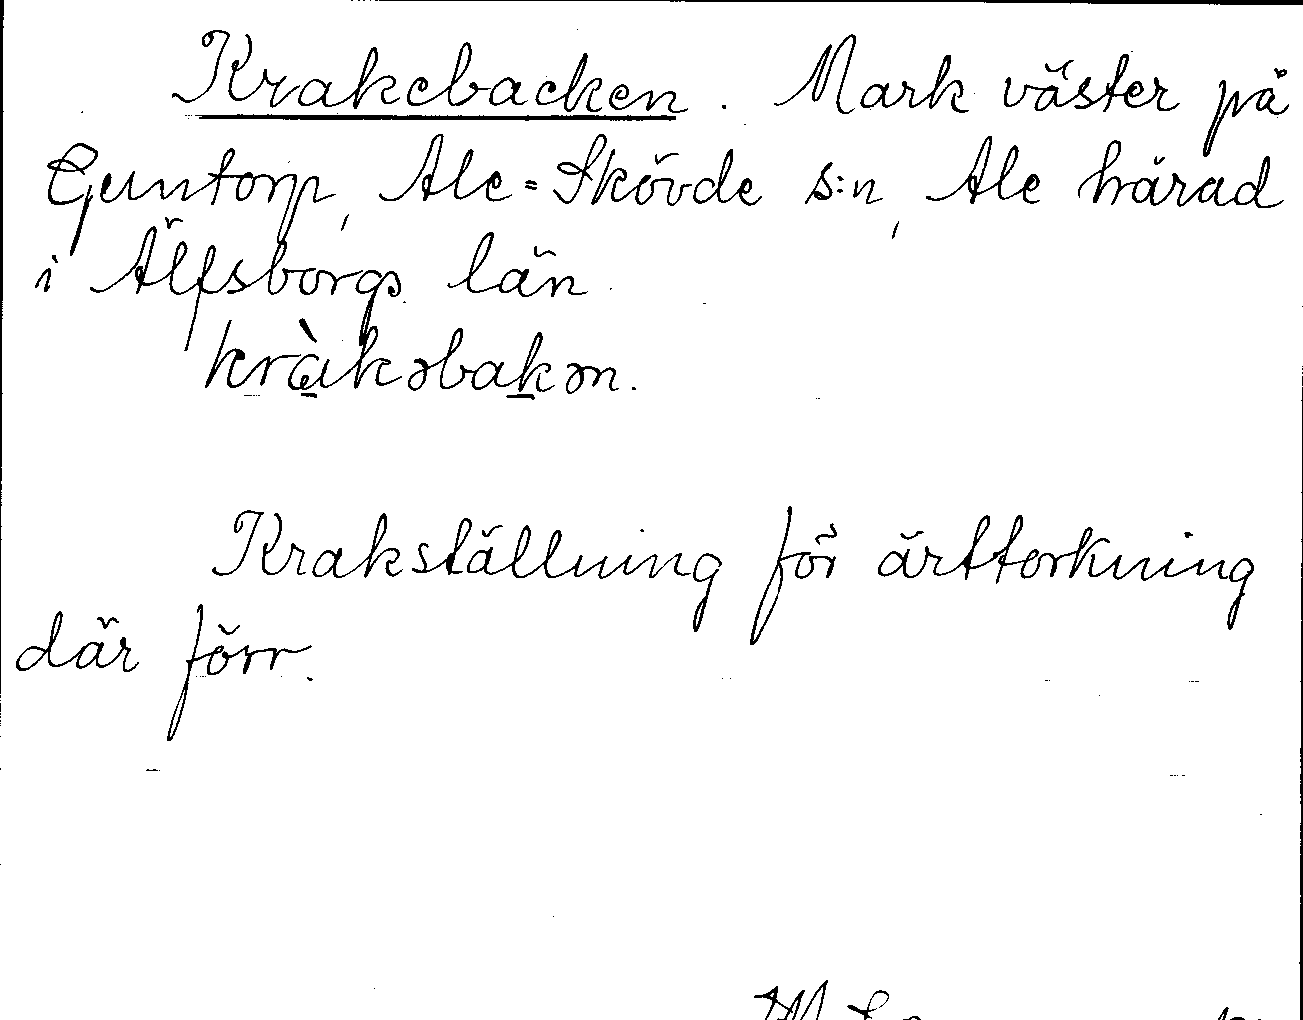 Krakebacken. Mark väster på
Guntorp, Ale-Skövde s:n, Ale härad
i Älfsborgs län.
kràkəbakən.
Krakställning för ärttorkning
där förr.